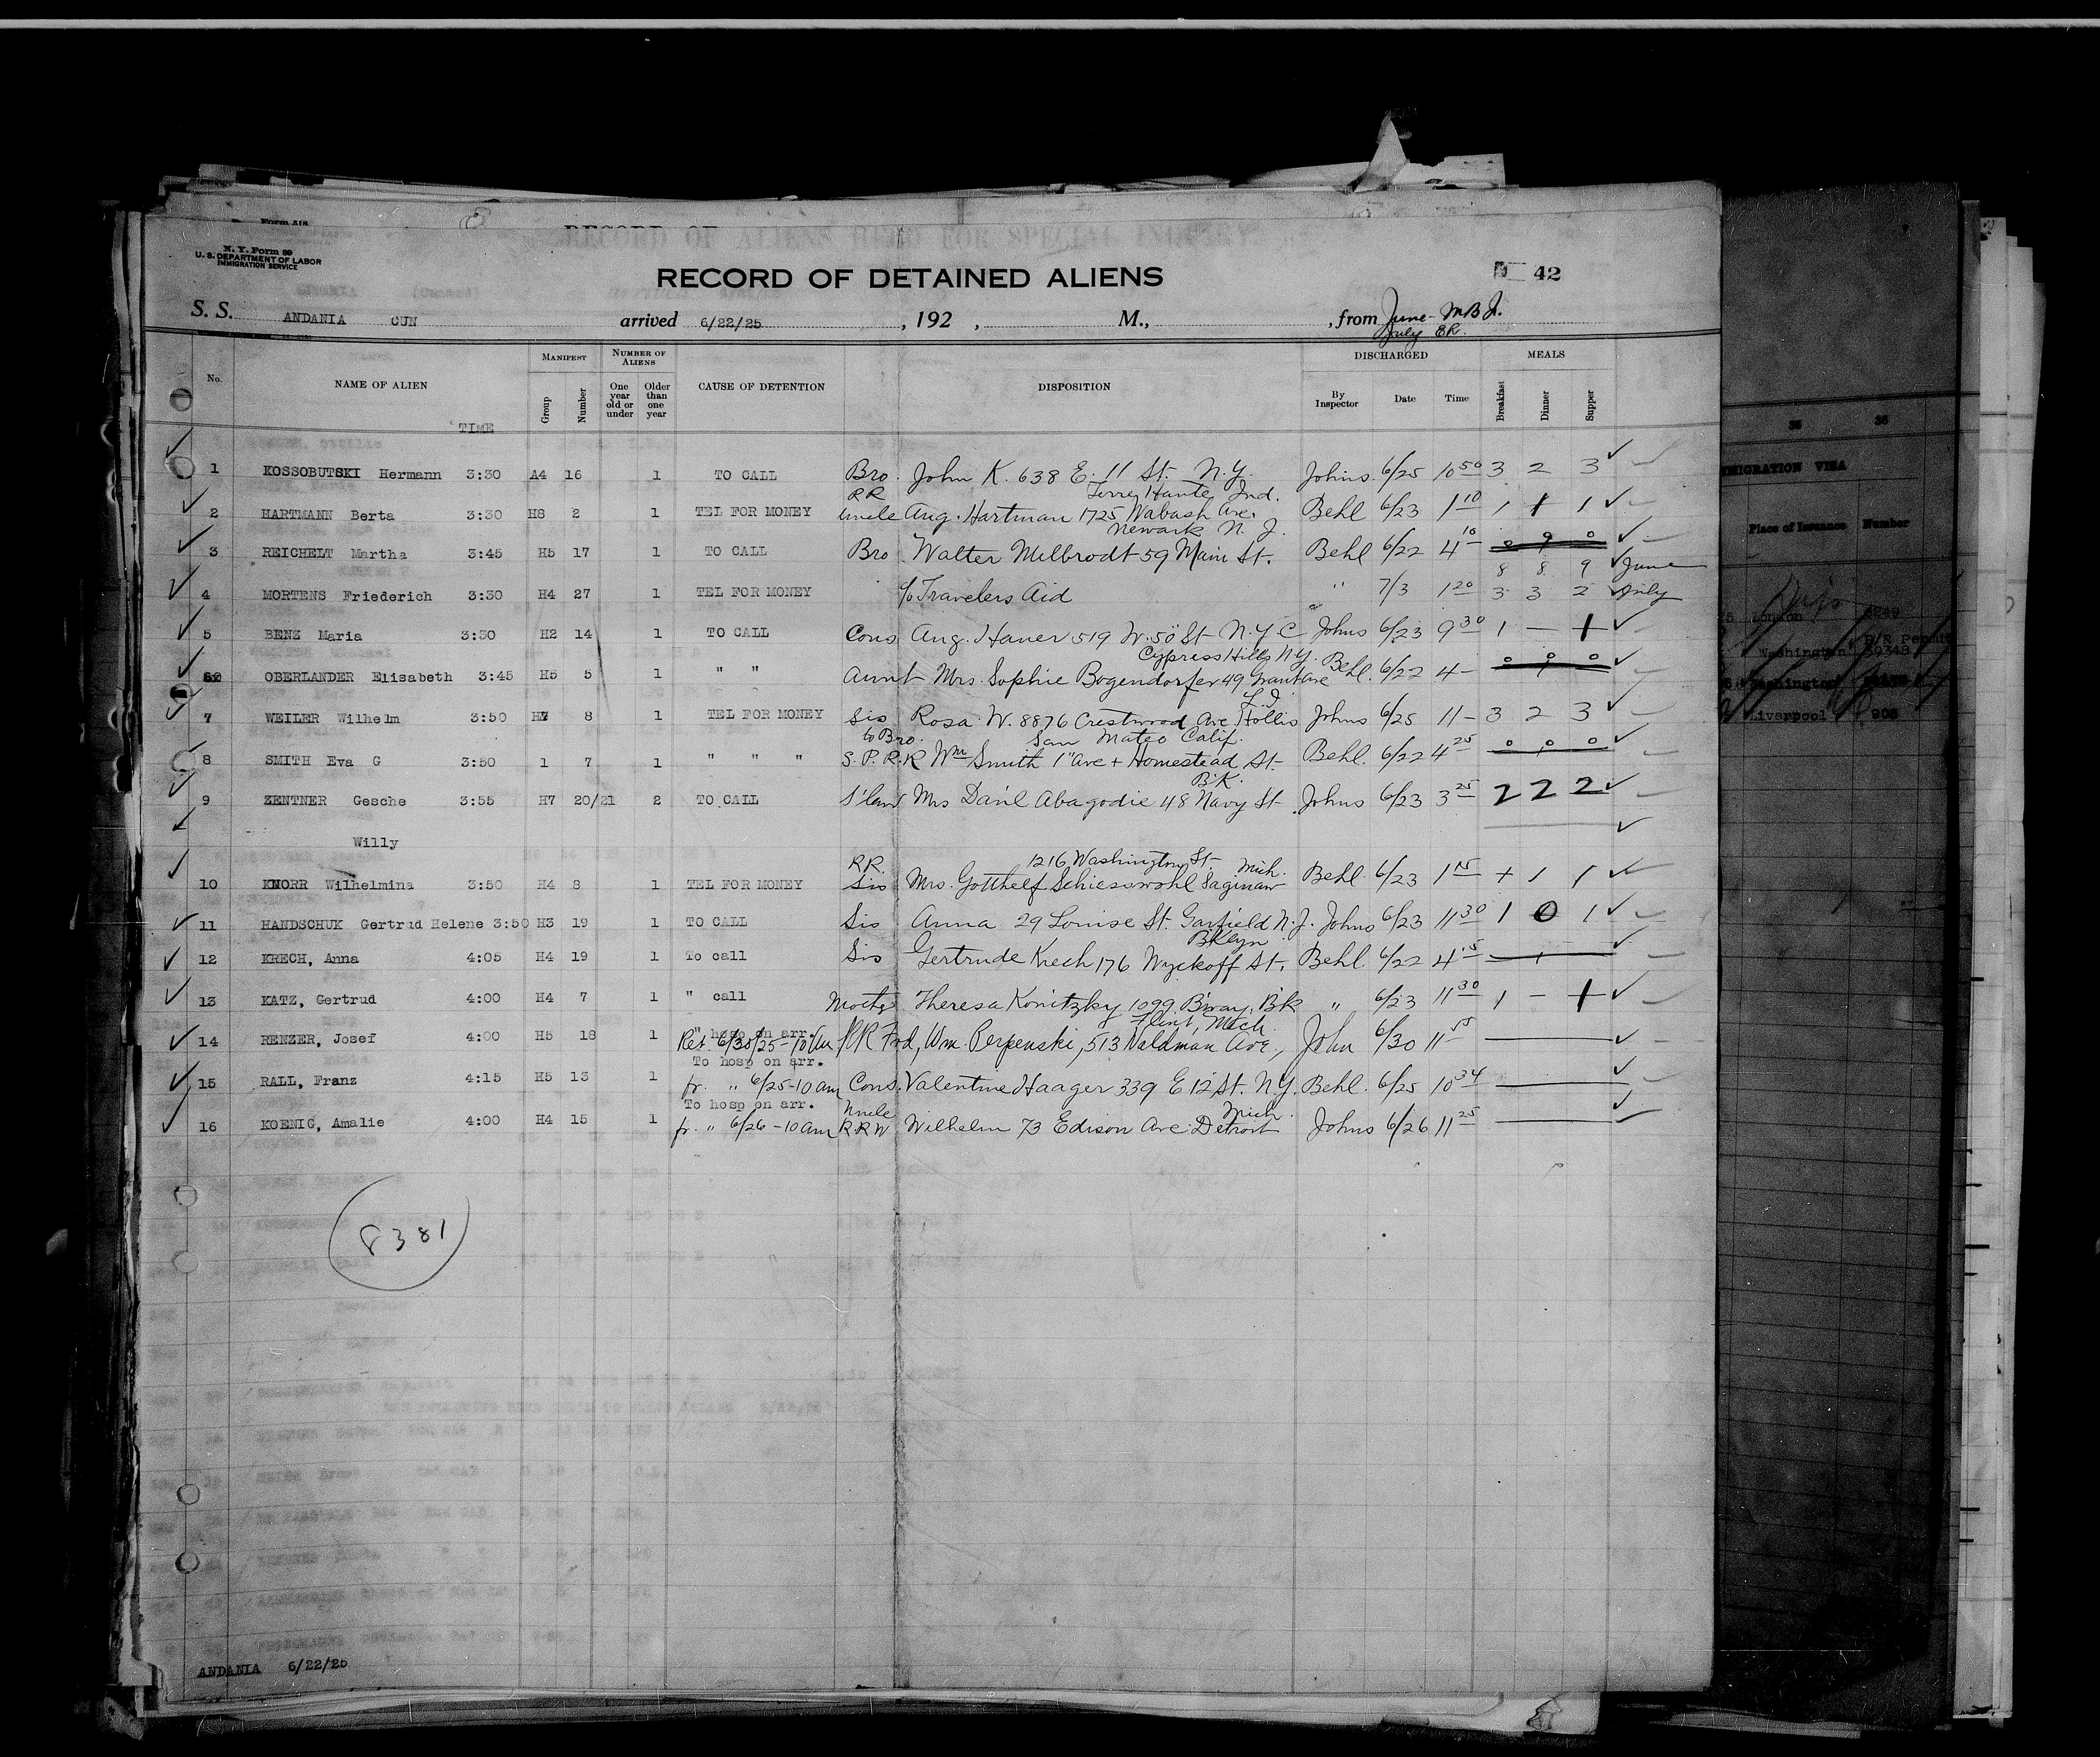 Form 418
N. Y. Form 89
U. S. DEPARTMENT OF LABOR
IMMIGRATION SERVICE
RECORD OF ALIENS HELD FOR SPECIAL INQUIRY
RECORD OF DETAINED ALIENS
42
S. S. ANDANIA CUN arrived 6/22/25 , 192 , M., , from June - MBJ.
July ER.
No. NAME OF ALIEN TIME MANIFEST Group Number NUMBER OF ALIENS One year old or under Older than one year CAUSE OF DETENTION DISPOSITION DISCHARGED By Inspector Date Time MEALS Breakfast Dinner Supper
1 KOSSOBUTSKI Hermann 3:30 A4 16 1 TO CALL Bro. John K. 638 E. 11 St. N.Y. Johns 6/25 10 50 3 2 3
RR Terre Haute, Ind.
2 HARTMANN Berta 3:30 H8 2 1 TEL FOR MONEY Uncle Aug. Hartman 1725 Wabash Ave. Behl 6/23 1 10 1 1 1
Newark N. J.
3 REICHELT Martha 3:45 H5 17 1 TO CALL Bro Walter Milbrodt 59 Main St. Behl 6/22 4 10
8 8 9 June
4 MORTENS Friederich 3:30 H4 27 1 TEL FOR MONEY c/o Travelers Aid " 7/3 1 20 3 3 2 July
5 BENZ Maria 3:30 H2 14 1 TO CALL Cons Aug. Haner 519 W. 50 St N.Y.C Johns 6/23 9 30 1 — 1
Cypress Hills N.Y.
OBERLANDER Elisabeth 3:45 H5 5 1 " " Aunt Mrs. Sophie Bogendorfer 49 Grant Ave Behl. 6/22 4 - 0 0 0
L.I.
7 WEILER Wilhelm 3:50 H7 8 1 TEL FOR MONEY Sis Rosa W. 8876 Crestwood Ave Hollis Johns 6/25 11 - 3 2 3
to Bro. San Mateo Calif.
8 SMITH Eva G 3:50 1 7 1 " " " S.P.R.R Wm Smith 1" Ave + Homestead St- Behl. 6/22 4 25 0 0 0
B'K.
9 ZENTNER Gesche 3:55 H7 20/21 2 TO CALL S'law Mrs Daril Abagodie 48 Navy St- Johns 6/23 3 25 2 2 2
Willy
RR. 1216 Washington St- Mich.
10 KNORR Wilhelmina 3:50 H4 8 1 TEL FOR MONEY Sis Mrs. Gotthelf Schiesswohl Saginaw Behl. 6/23 1 15 1 1
11 HANDSCHUK Gertrud Helene 3:50 H3 19 1 TO CALL Sis Anna 29 Louise St. Garfield N.J. Johns 6/23 11 30 1 0 1
BKlyn
12 KRECH, Anna 4:05 H4 19 1 To call Sis Gertrude Krech 176 Wyckoff St. Behl. 6/22 4 15
13 KATZ, Gertrud 4:00 H4 7 1 " call Theresa Konitzky 1099 B'way, B'k " 6/23 11 30 1 - 1
" hosp on arr. Flint, Mich.
14 RENZER, Josef 4:00 H5 18 1 Ret. 6/30/25 - 10 RR Frd, Wm. Perpenski, 513 Waldman Ave., John 6/30 11 55
To hosp on arr.
15 RALL, Franz 4:15 H5 13 1 fr. " 6/25 - 10 am Cons. Valentine Haager 339 E 12 St. N.Y. Behl. 6/25 10 34
To hosp on arr. Uncle Mich.
16 KOENIG, Amalie 4:00 H4 15 1 fr. " 6/26 - 10 am RRW Wilhelm 73 Edison Ave. Detroit Johns 6/26 11 25
8381
ANDANIA 6/22/25
35 36
IMMIGRATION VISA
Place of Issuance Number
London
Washington 39348
Washington
Liverpool 908